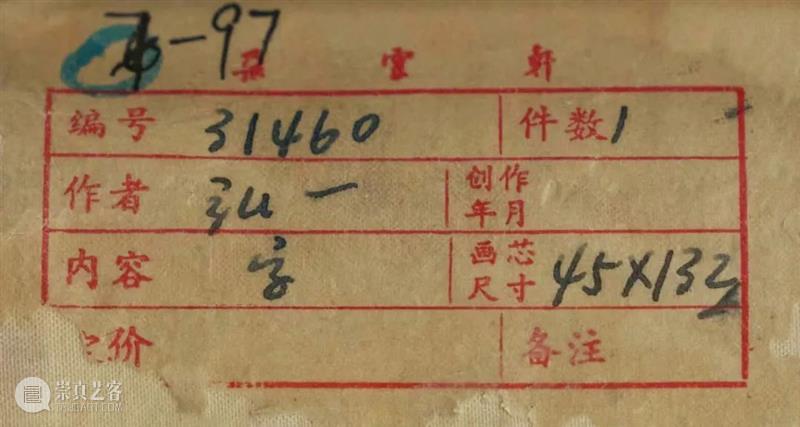 -97
朵雲軒
编号 31460 件数 1
作者 弘一 创作年月
内容 字 画芯尺寸 45X132
价 备注
崇真艺客